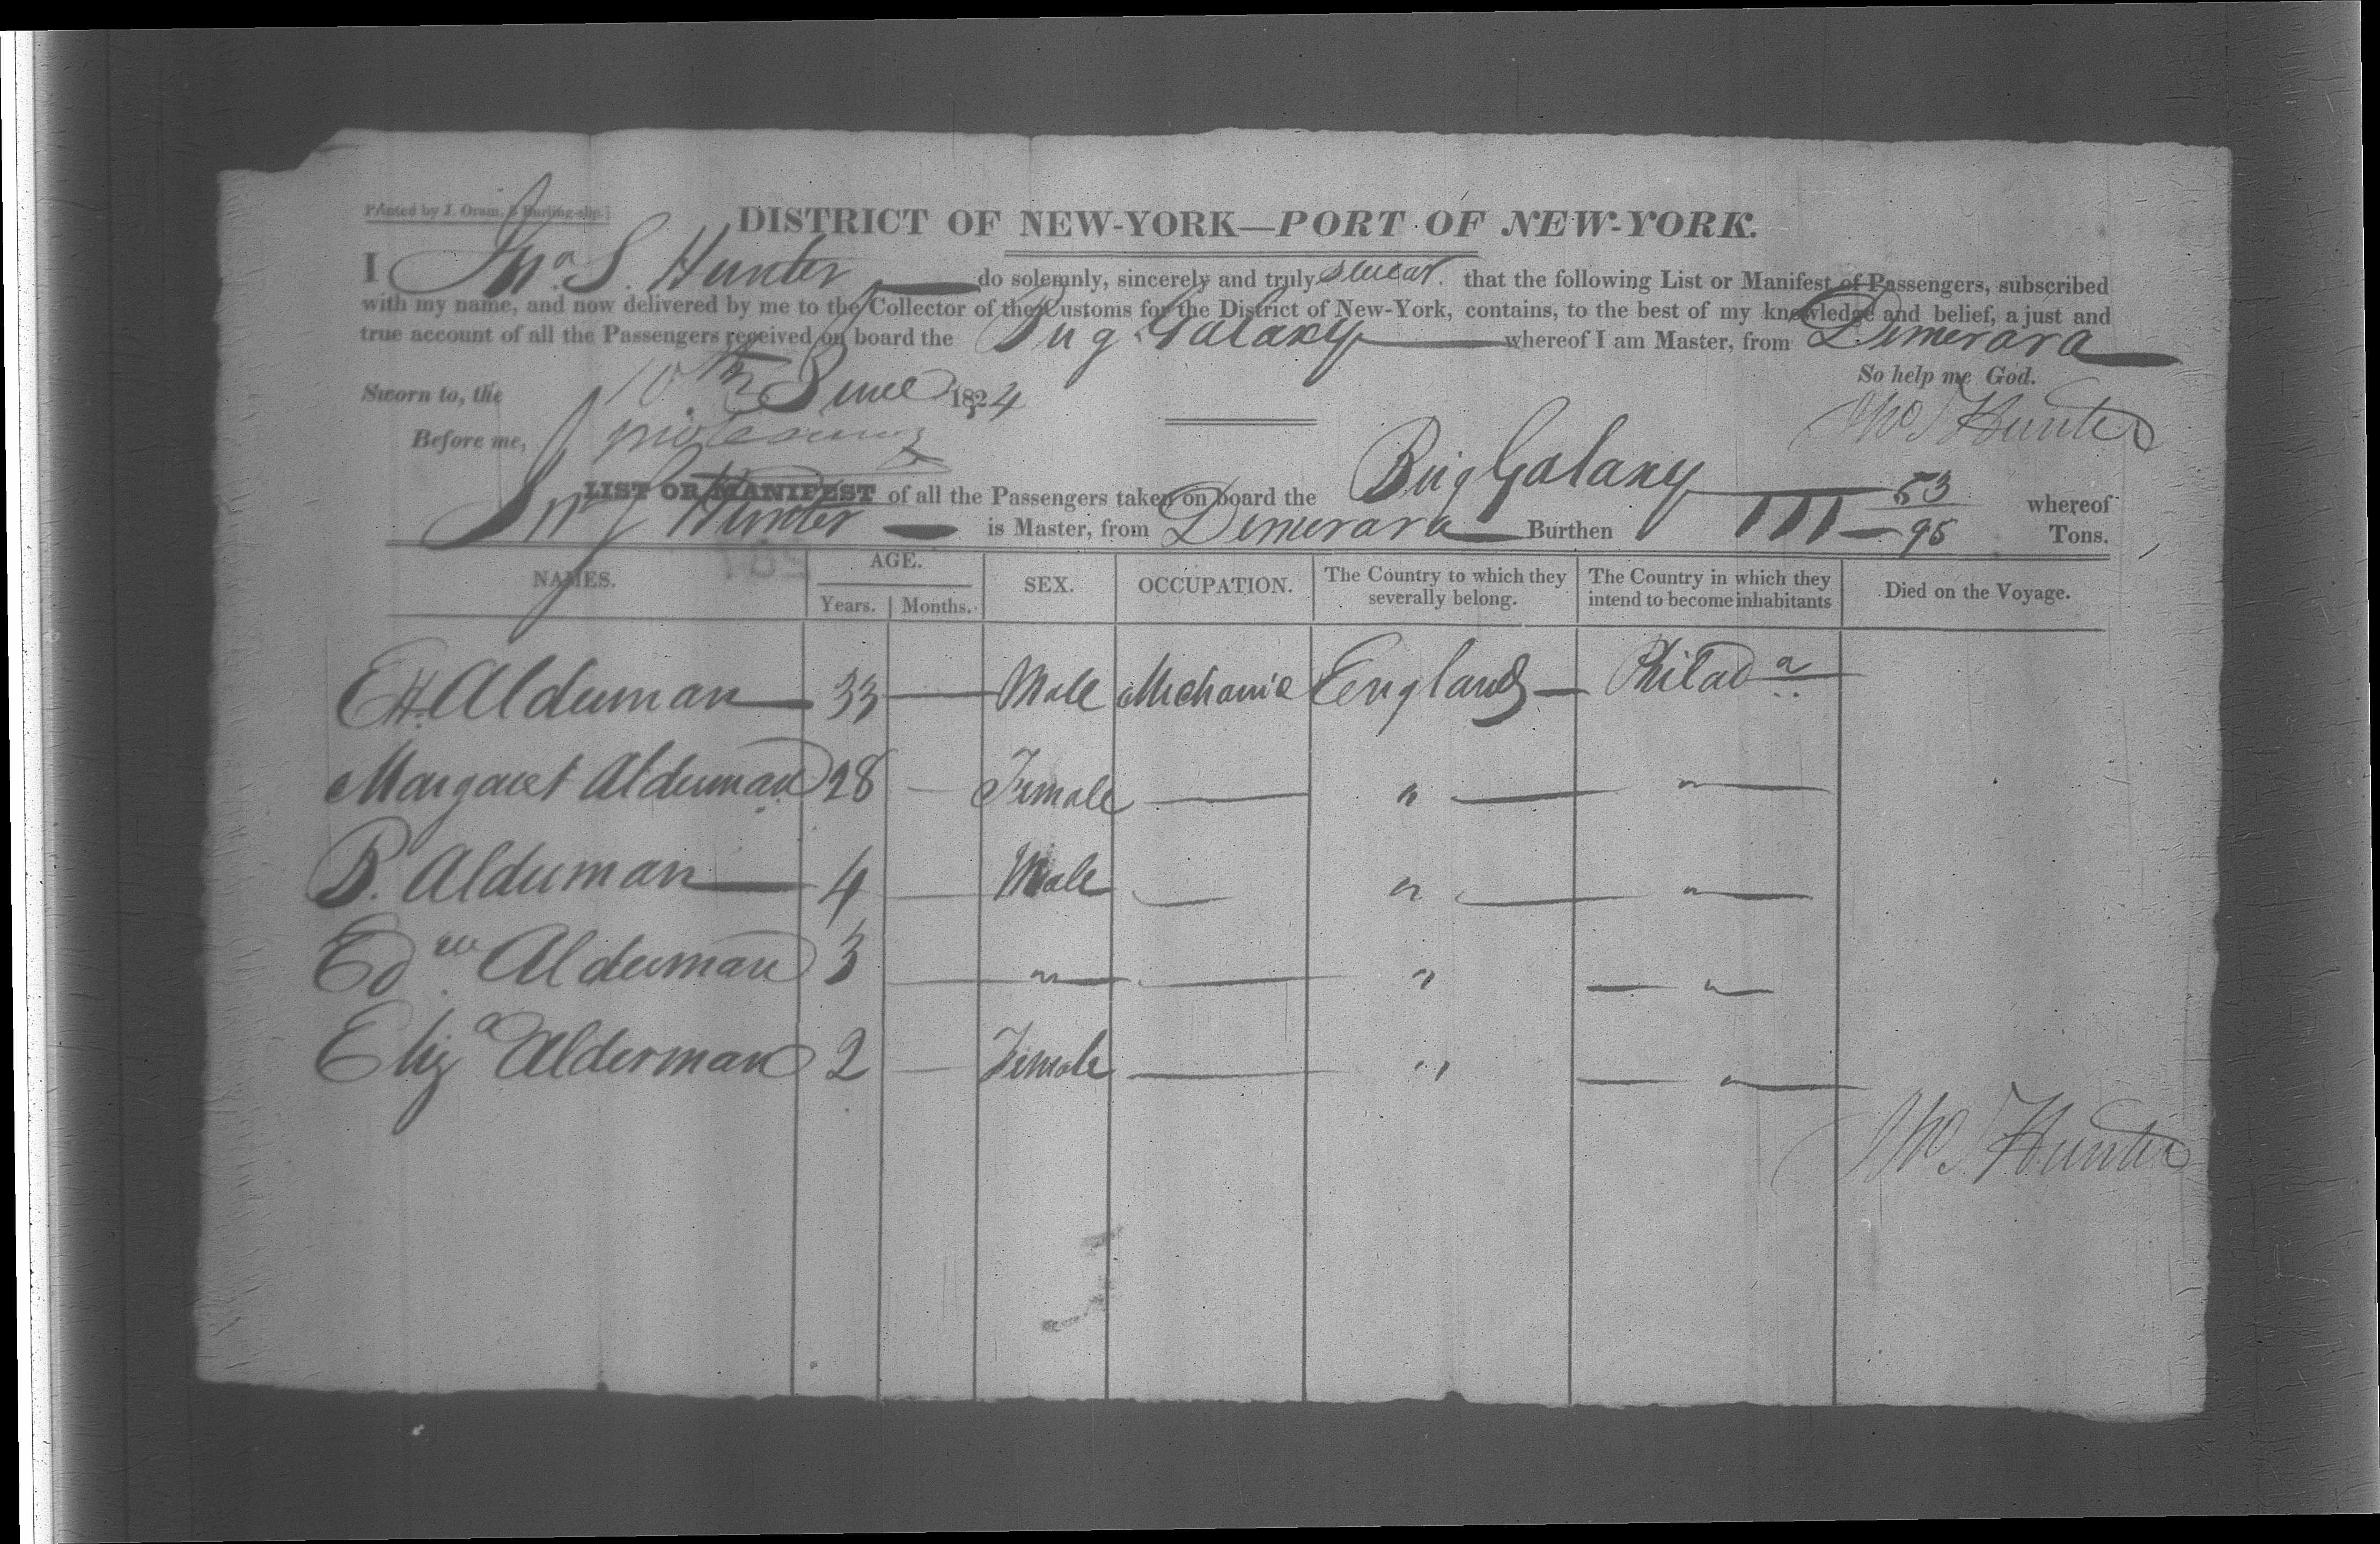 Printed by J. Oram, Burling-slip.]
DISTRICT OF NEW-YORK—PORT OF NEW-YORK.
I Jno. S. Hunter do solemnly, sincerely and truly swear that the following List or Manifest of Passengers, subscribed
with my name, and now delivered by me to the Collector of the Customs for the District of New-York, contains, to the best of my knowledge and belief, a just and
true account of all the Passengers received on board the Brig Galaxy whereof I am Master, from Dimerara
So help me God.
Sworn to, the 10th June 1824
Jno S Hunter
Before me,
LIST OR MANIFEST of all the Passengers taken on board the Brig Galaxy whereof
Jno S Hunter is Master, from Dimerara Burthen 111 53/95 Tons.
NAMES. AGE. Years. Months. SEX. OCCUPATION. The Country to which they severally belong. The Country in which they intend to become inhabitants Died on the Voyage.
E H. Alderman 33 — Male Mechanic England — Philad a
Margaret Alderman 28 — Female — " — " —
B. Alderman 4 — Male — " — " —
Edw Alderman 3 — " — — " — " —
Eliza Alderman 2 — Female — " — " —
Jno S Hunter